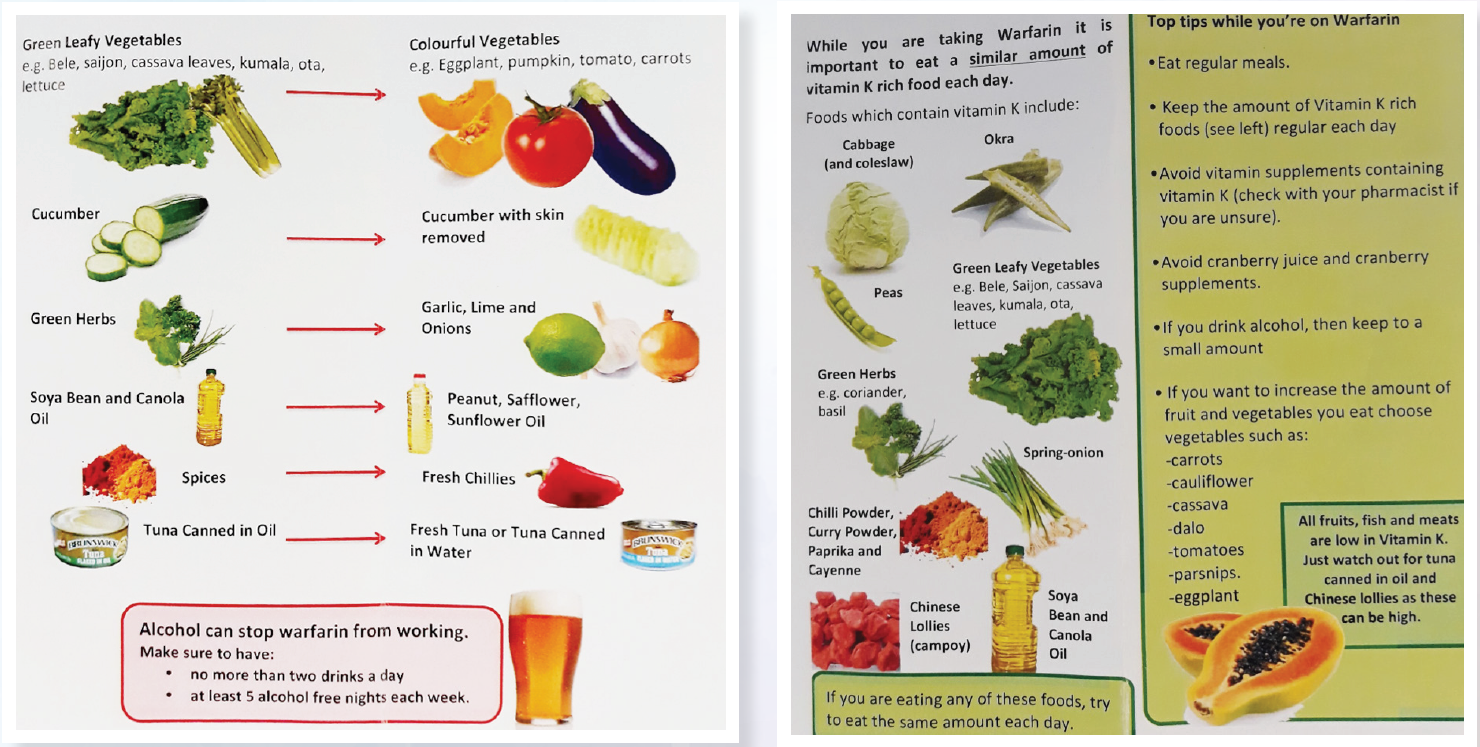 Green Leafy Vegetables
e.g. Bele, saijon, cassava leaves, kumala, ota,
lettuce
Colourful Vegetables
e.g. Eggplant, pumpkin, tomato, carrots
Cucumber
Cucumber with skin
removed
Green Herbs
Garlic, Lime and
Onions
Soya Bean and Canola
Oil
Peanut, Safflower,
Sunflower Oil
Spices
Fresh Chillies
Tuna Canned in Oil
BRUNSWICK
Tuna
Fresh Tuna or Tuna Canned
in Water
BRUNSWICK
Tuna
Alcohol can stop warfarin from working.
Make sure to have:
• no more than two drinks a day
• at least 5 alcohol free nights each week.
While you are taking Warfarin it is
important to eat a similar amount of
vitamin K rich food each day.
Foods which contain vitamin K include:
Cabbage
(and coleslaw)
Okra
Peas
Green Leafy Vegetables
e.g. Bele, Saijon, cassava
leaves, kumala, ota,
lettuce
Green Herbs
e.g. coriander,
basil
Spring-onion
Chilli Powder,
Curry Powder,
Paprika and
Cayenne
Chinese
Lollies
(campoy)
Soya
Bean and
Canola
Oil
If you are eating any of these foods, try
to eat the same amount each day.
Top tips while you're on Warfarin
•Eat regular meals.
• Keep the amount of Vitamin K rich
foods (see left) regular each day
•Avoid vitamin supplements containing
vitamin K (check with your pharmacist if
you are unsure).
•Avoid cranberry juice and cranberry
supplements.
•If you drink alcohol, then keep to a
small amount
• If you want to increase the amount of
fruit and vegetables you eat choose
vegetables such as:
-carrots
-cauliflower
-cassava
-dalo
-tomatoes
-parsnips.
-eggplant
All fruits, fish and meats
are low in Vitamin K.
Just watch out for tuna
canned in oil and
Chinese lollies as these
can be high.